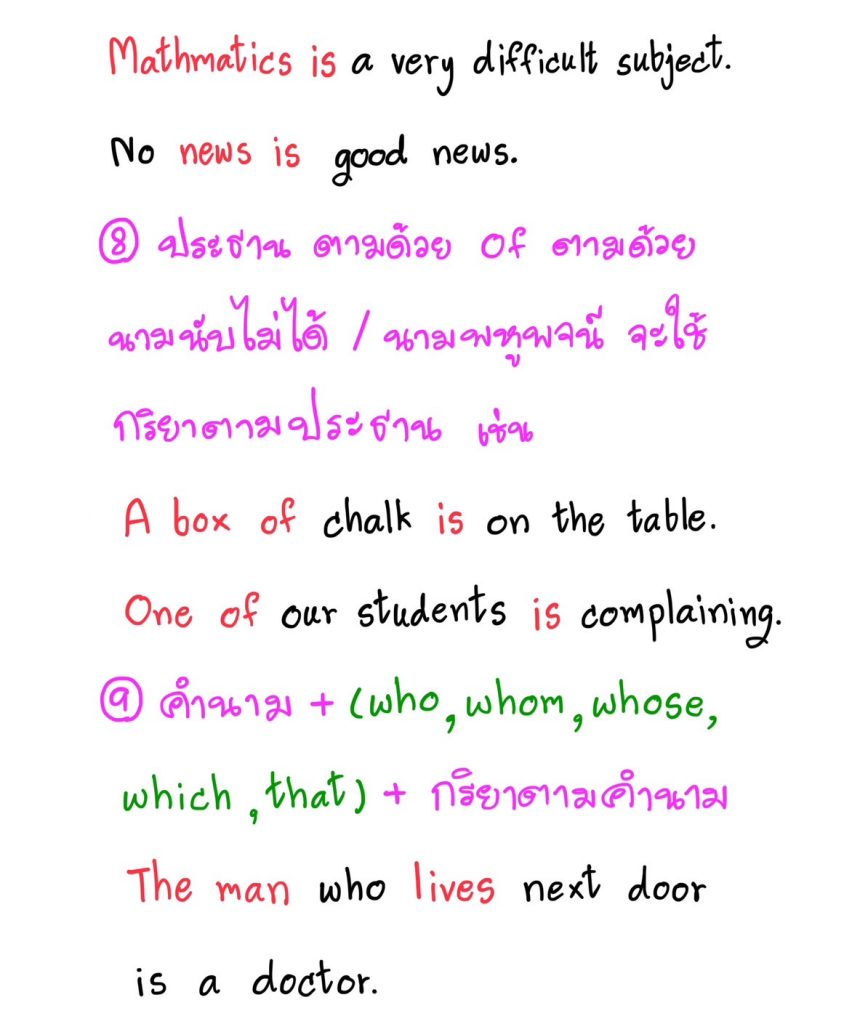 Mathmatics is a very difficult subject.
No news is good news.
⑧ ประธาน ตามด้วย of ตามด้วย
นามนับไม่ได้ / นามพหูพจน์ จะใช้
กริยาตามประธาน เช่น
A box of chalk is on the table.
One of our students is complaining.
⑨ คำนาม + (who, whom, whose,
which, that) + กริยาตามคำนาม
The man who lives next door
is a doctor.